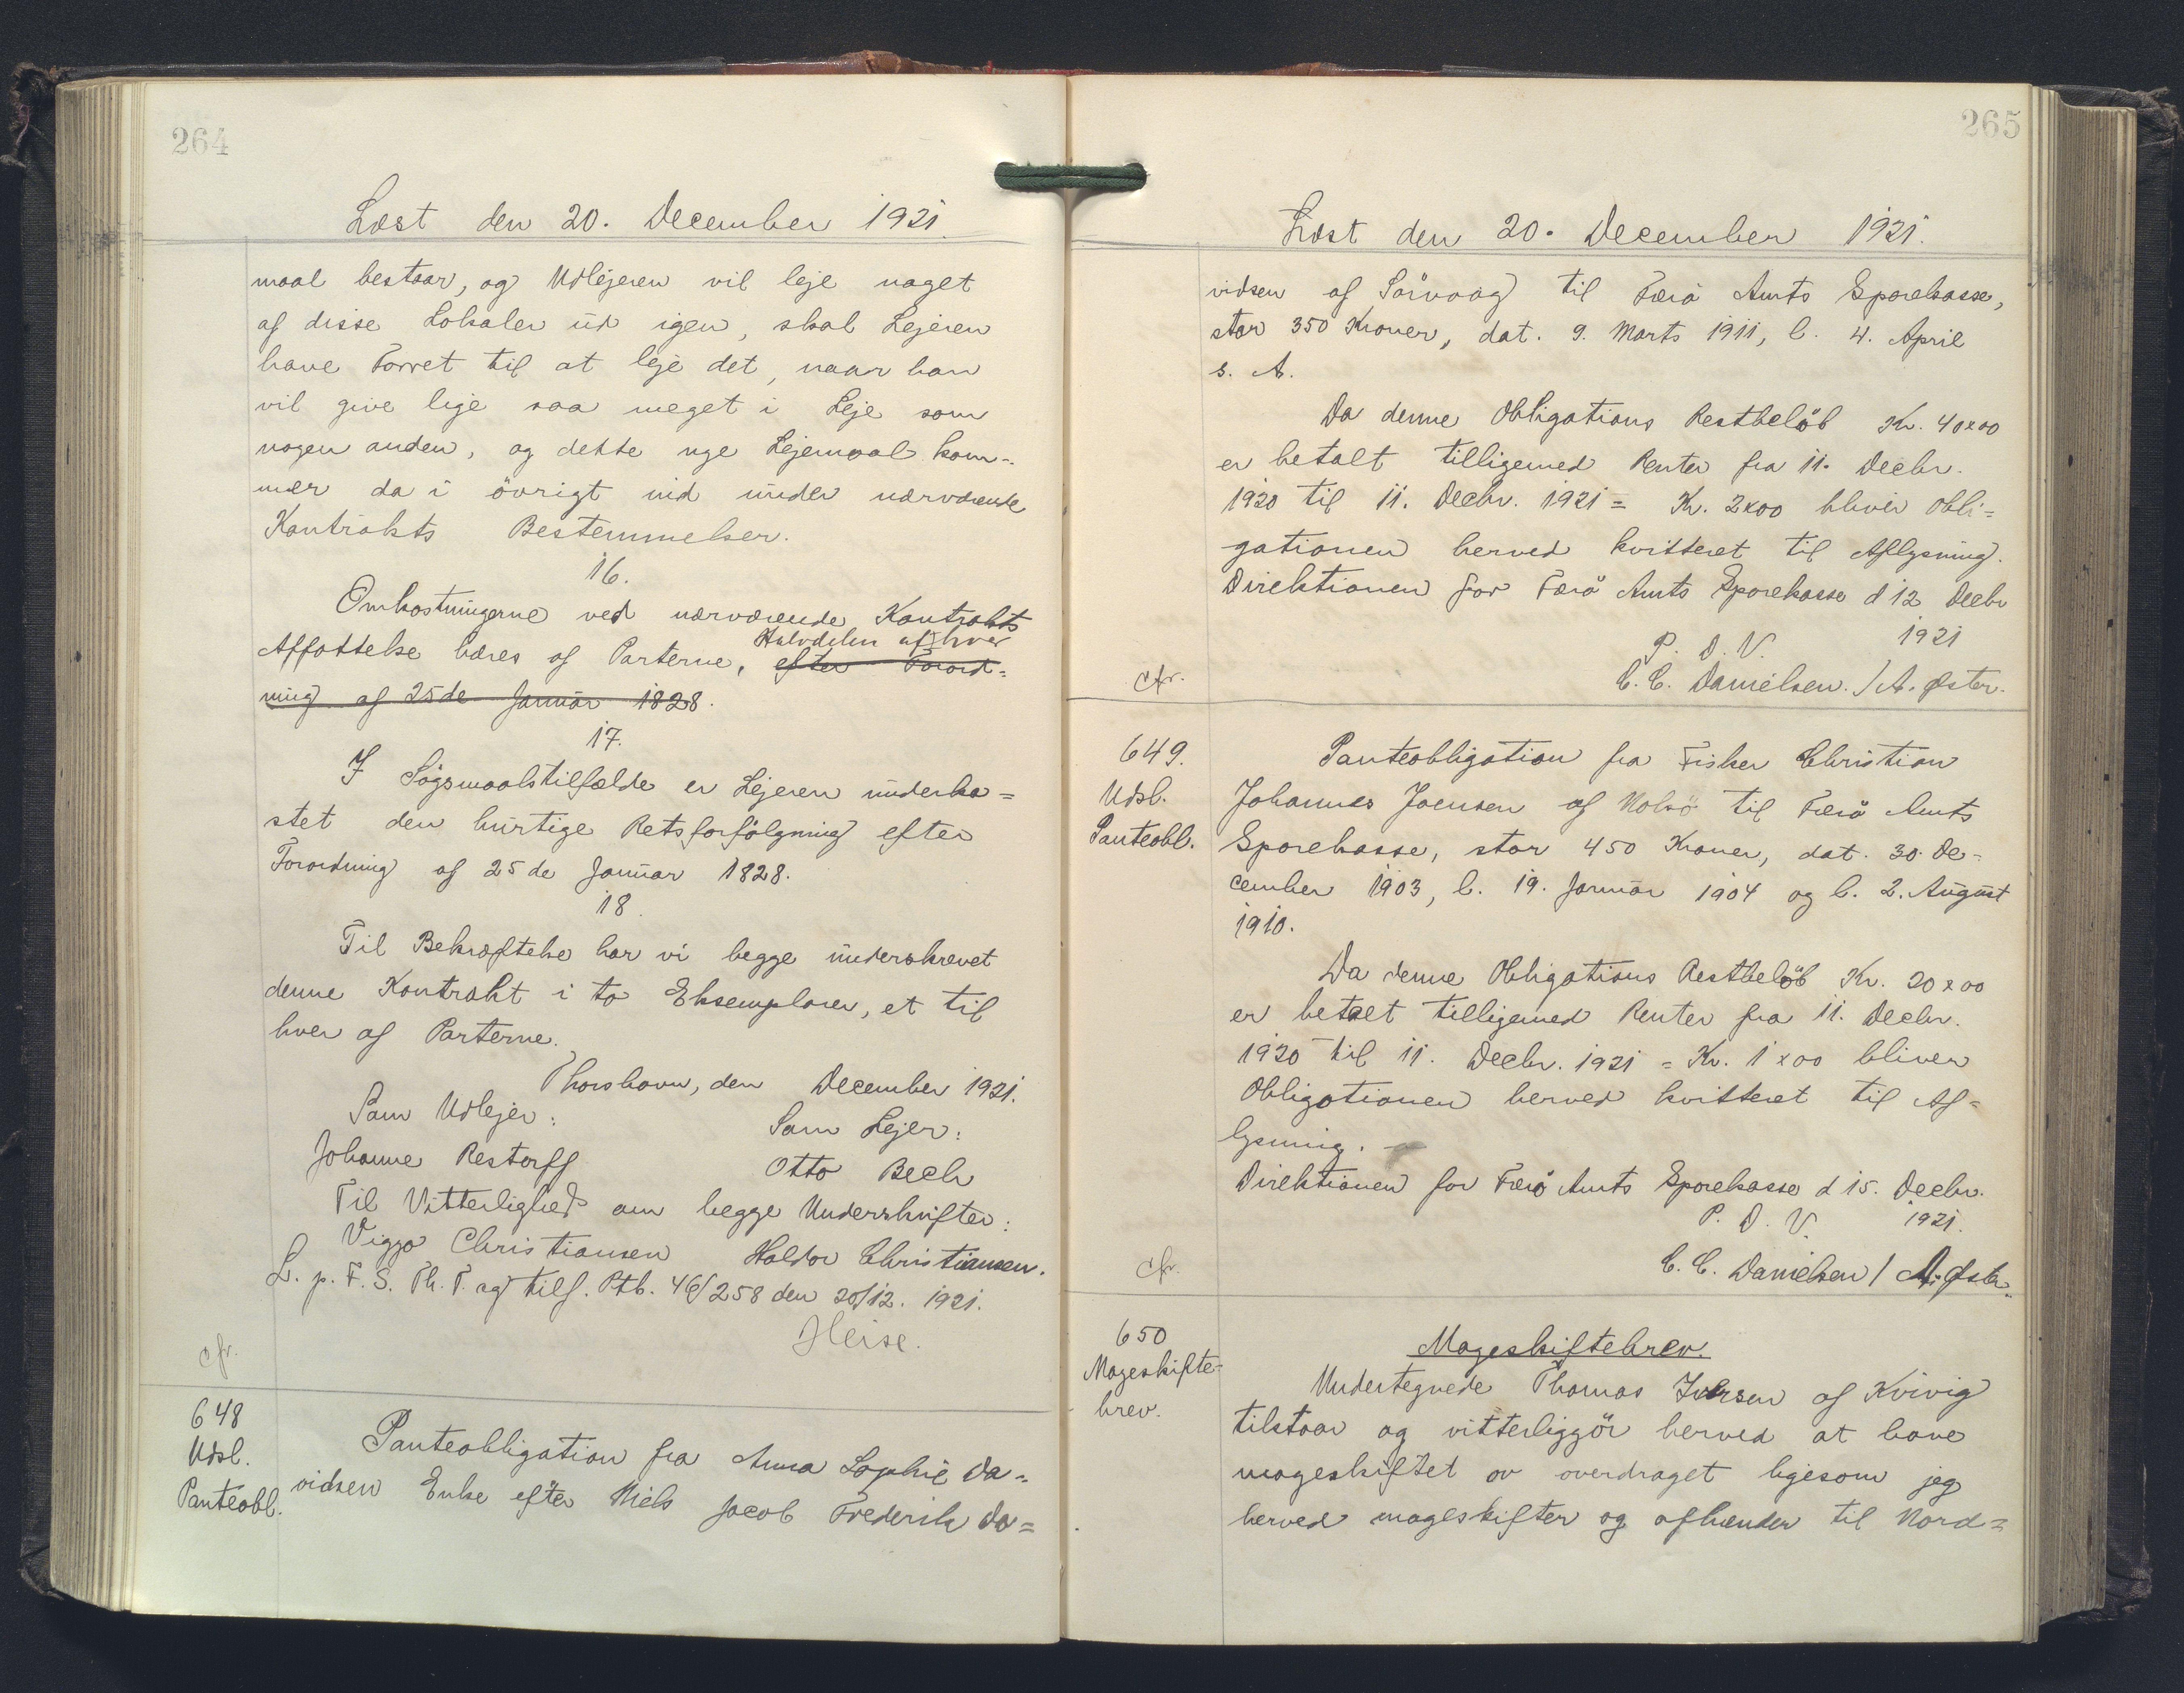 264
Læst den 20. December 1921.
maal bestaar, og Udlejeren vil leje noget
af disse Lokaler ud igen, skal Lejeren
have Forret til at leje det, naar han
vil give lige saa meget i Leje som
nogen anden, og dette nye Lejemaal kom-
mer da i övrigt ind under nærværende
Kontrakts Bestemmelser.
16.
Omkostningerne ved nærværende Kontrakts
Halvdelen af hver
Affattelse bæres af Parterne, efter Forord-
ning af 25de Januar 1828.
17.
I Sögsmaalstilfælde er Lejeren underka=
stet den hurtige Retsforfölgning efter
Forordning af 25de Januar 1828.
18.
Til Bekræftelse har vi begge underskrevet
denne Kontrakt i to Eksemplarer, et til
hver af Parterne.
Thorshavn, den December 1921.
Som Udlejer: Som Lejer:
Johanne Restorff Otto Bech
Til Vitterlighed om begge Underskrifter:
Viggo Christiansen Haldor Christiansen.
L. p. F. S. Th. T. og tilf. Ptb. 46/258 den 20/12. 1921.
Heise.
cfr.
648
Udsl.
Panteobl.
Panteobligation fra Anna Sophie Da=
vidsen Enke efter Niels Jacob Frederik Da=
265
Læst den 20. December 1921.
vidsen af Sörvaag til Færö Amts Sparekasse,
stor 350 Kroner, dat. 9. Marts 1911, l. 4. April
s. A.
Da denne Obligations Restbelöb Kr. 40x00
er betalt tilligemed Renter fra 11. Decbr.
1920 til 11. Decbr. 1921 = Kr. 2x00 bliver Obli=
gationen herved kvitteret til Aflysning.
Direktionen for Færö Amts Sparekasse d 12 Decbr
P. D. V. 1921
cfr. C. C. Danielsen. / A. Øster.
649.
Udsl.
Panteobl.
Panteobligation fra Fisker Christian
Johannes Joensen af Nolsö til Færö Amts
Sparekasse, stor 450 Kroner, dat. 30. De-
cember 1903, l. 19. Januar 1904 og l. 2. August
1910.
Da denne Obligations Restbelöb Kr. 20x00
er betalt tilligemed Renter fra 11. Decbr.
1920 til 11. Decbr. 1921 = Kr. 1x00 bliver
Obligationen herved kvitteret til Af=
lysning.
Direktionen for Færö Amts Sparekasse d 15. Decbr.
P. D. V. 1921.
cfr. C. C. Danielsen / A. Øster.
650
Mageskifte-
brev.
Mageskiftebrev.
Undertegnede Thomas Iversen af Kvivig
tilstaar og vitterliggör herved at have
mageskiftet ov overdraget ligesom jeg
herved mageskifter og afhænder til Nord=